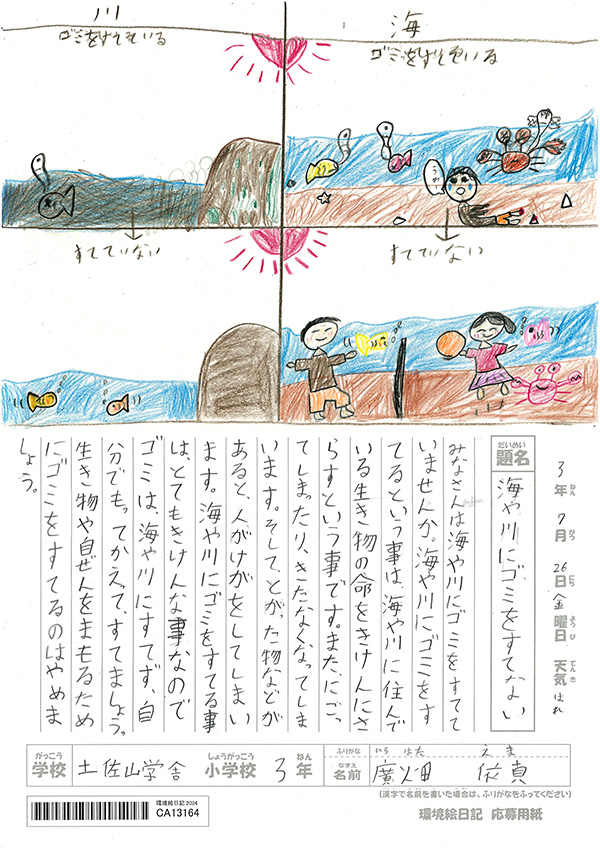 川
ゴミをすてている
海
ゴミをすてている
うわー
すてていない
すてていない
3年 7月 26日 金曜日 天気 はれ
ねん がつ にち ようび てんき
だいめい
題名 海や川にゴミをすてない
みなさんは海や川にゴミをすてて
いませんか。海や川にゴミをす
てるという事は、海や川に住んで
いる生き物の命をきけんにさ
らすという事です。また、にごっ
てしまったり、きたなくなってしま
います。そして、とがった物などが
あると、人がけがをしてしまい
ます。海や川にゴミをすてる事
は、とてもきけんな事なので
ゴミは、海や川にすてず、自
分でもってかえって、すてましょう。
生き物や自ぜんをまもるため
にゴミをすてるのはやめま
しょう。
がっこう しょうがっこう ねん ふりがな いろ はた えま
学校 土佐山学舎 小学校 3年 なまえ 名前 廣畑 依真
(漢字で名前を書いた場合は、ふりがなをふってください)
環境絵日記 2024
CA13164
環境絵日記 応募用紙